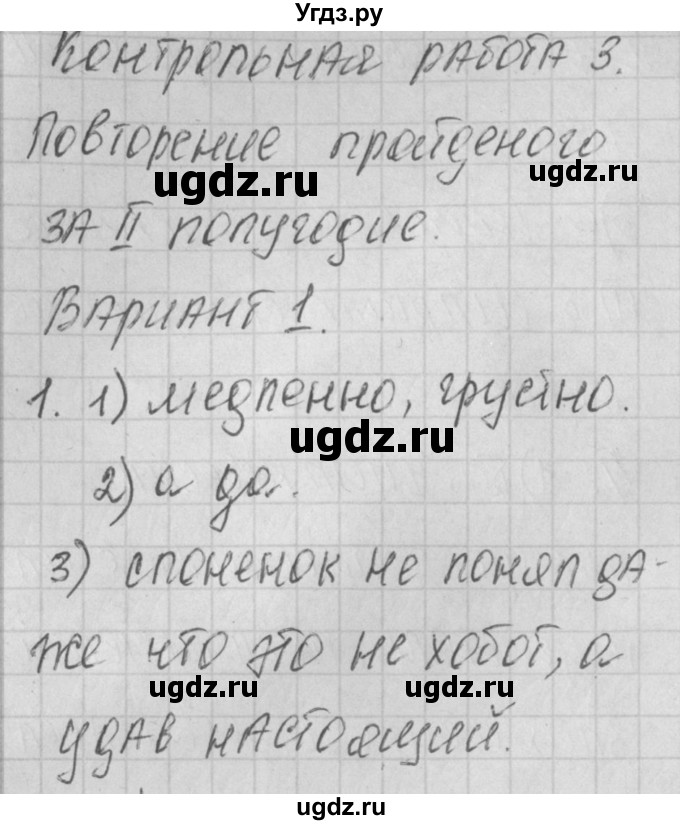 Угдз.ру
Контрольная работа 3.
Повторение пройденого
ugdz.ru
ugdz.ru
за II полугодие.
Вариант 1.
1. 1) медленно, грустно.
ugdz.ru
2) а да.
3) слоненок не понял да-
же что это не хобот, а
ugdz.ru
ugdz.ru
удав настоящий.
ugdz.ru